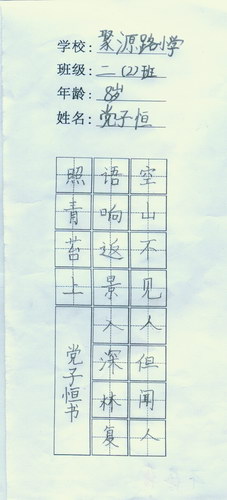 学校：聚源路小学
班级：二（2）班
年龄：8岁
姓名：党子恒
空山不见人但闻人
语响返景入深林复
照青苔上
党子恒书